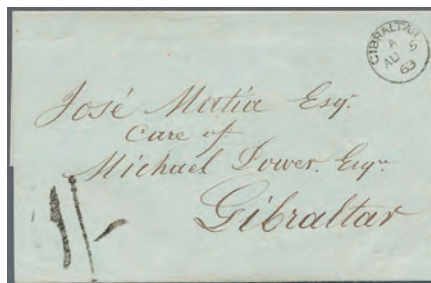 GIBRALTAR
A
AU 5
63
José Matia Esqr.
Care of
Michael Power. Esqre
Gibraltar
1/-